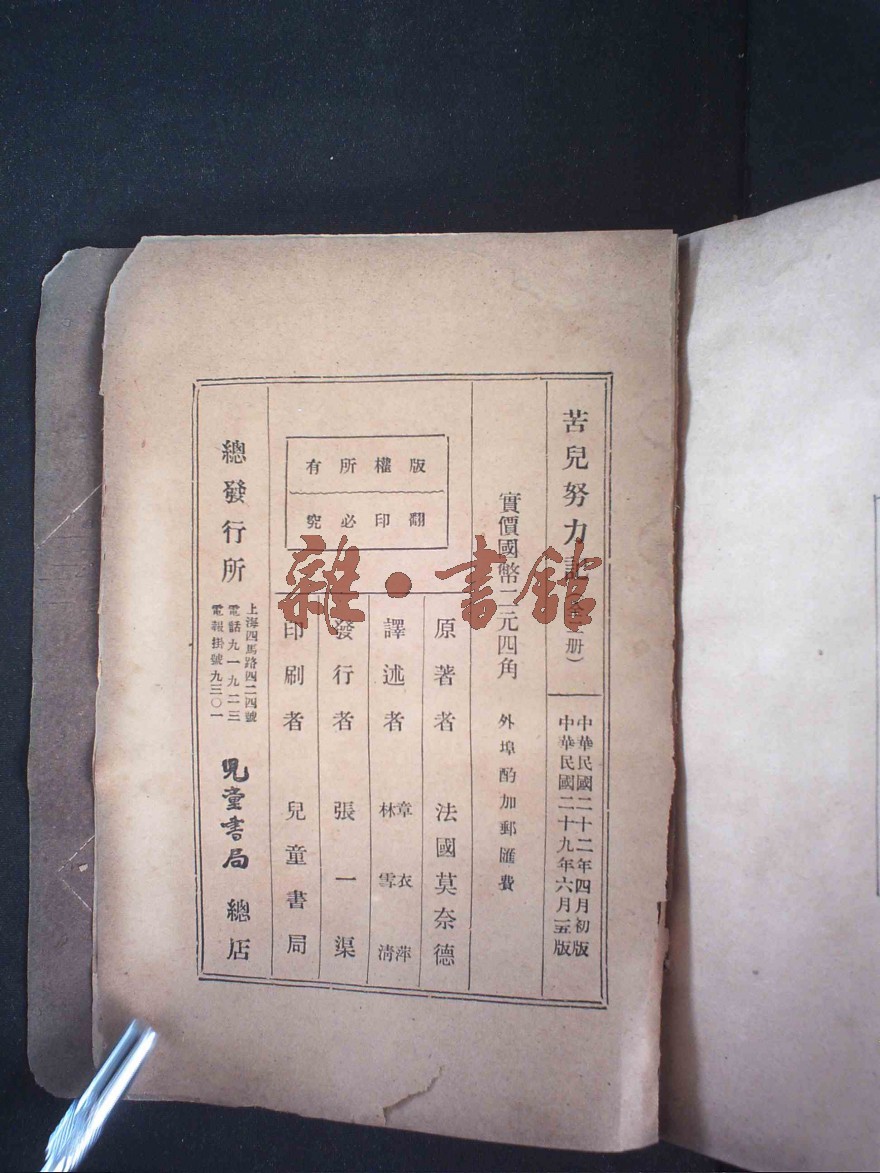 苦兒努力記（全二册）
中華民國二十二年四月初版
中華民國二十九年六月五版
實價國幣二元四角 外埠酌加郵匯費
版權所有
翻印必究
原著者 法國莫奈德
譯述者 章衣萍
林雪清
發行者 張一渠
印刷者 兒童書局
總發行所
上海四馬路四二四號
電話九一九二三
電報掛號九三〇一
兒童書局 總店
雜·書館